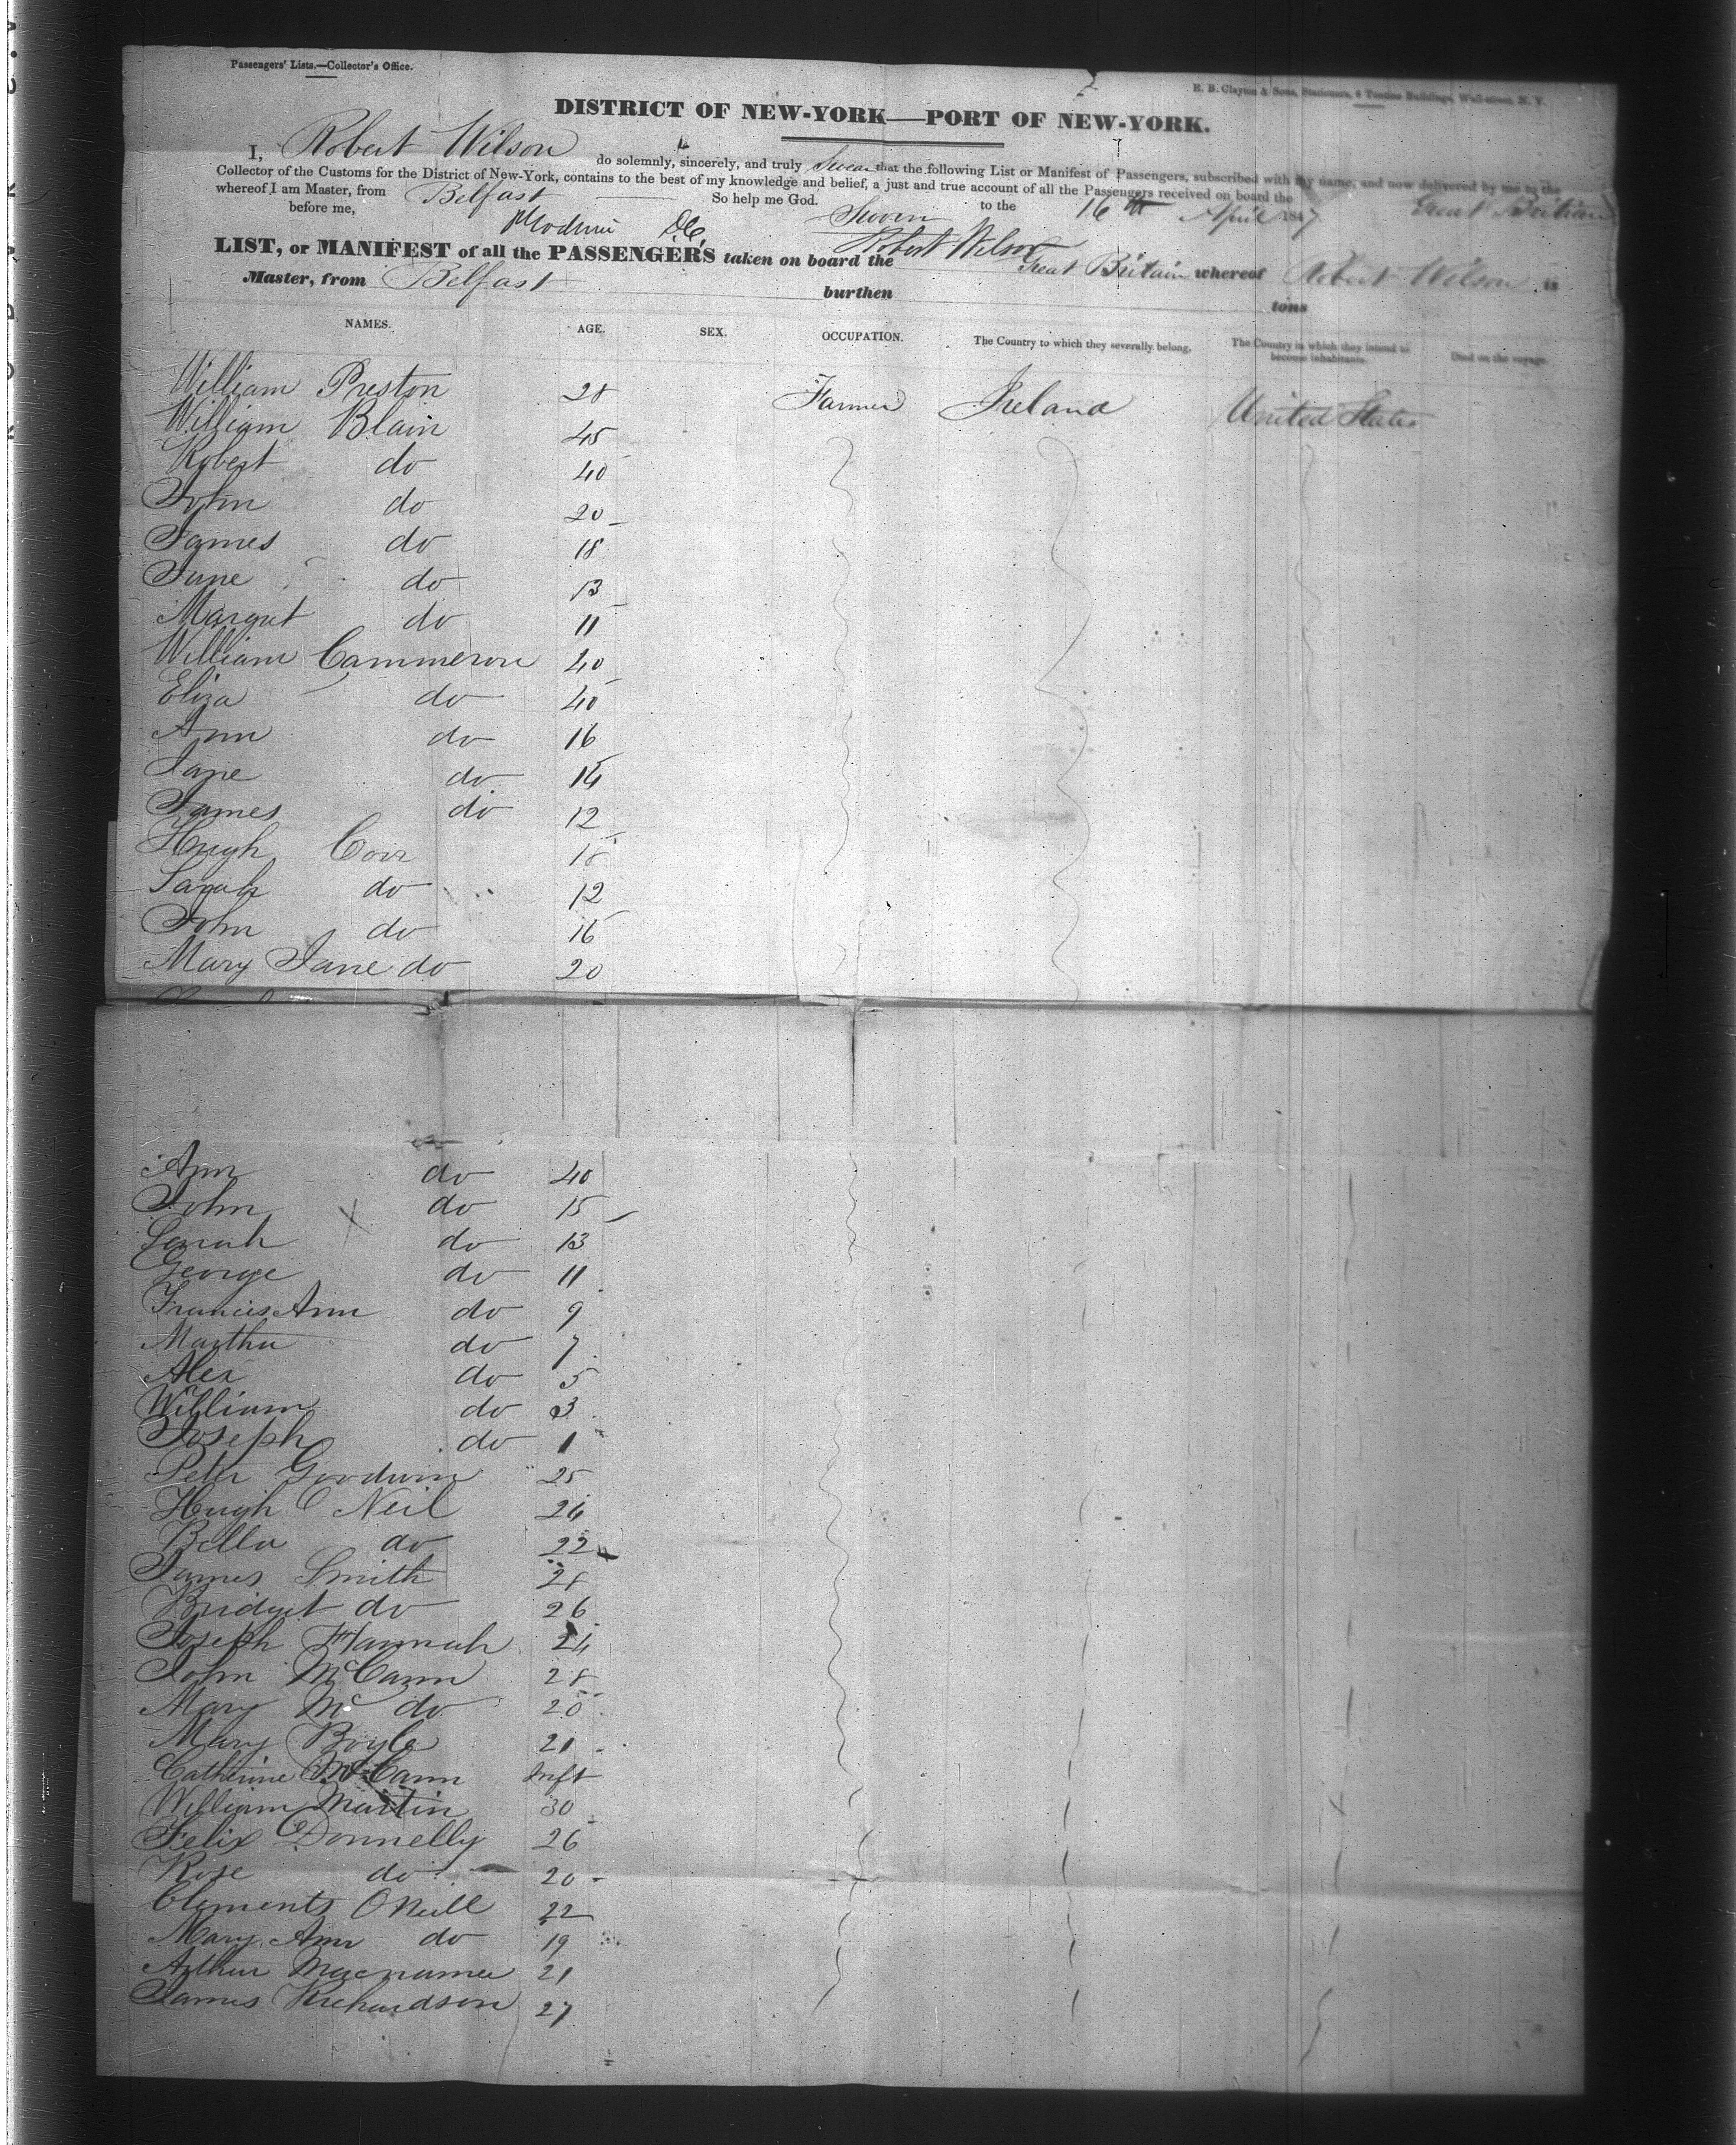 Passengers' Lists.—Collector's Office.
E. B. Clayton & Sons, Stationers, 4 Tontine Buildings, Wall-street, N. Y.
DISTRICT OF NEW-YORK—PORT OF NEW-YORK.
I, Robert Wilson do solemnly, sincerely, and truly Swear that the following List or Manifest of Passengers, subscribed with my name, and now delivered by me to the
Collector of the Customs for the District of New-York, contains to the best of my knowledge and belief, a just and true account of all the Passengers received on board the Great Britian
whereof I am Master, from Belfast So help me God.
Sworn to the 16th April 1847
before me,
Robert Wilson
LIST, or MANIFEST of all the PASSENGERS taken on board the Great Britain whereof Robert Wilson is
Master, from Belfast burthen tons
NAMES. AGE. SEX. OCCUPATION. The Country to which they severally belong. The Country in which they intend to become inhabitants. Died on the voyage.
William Preston 28 Farmer Ireland United States
William Blain 45
Robert do 40
John do 20
James do 18
Jane do 13
Margret do 11
William Cammeron 40
Eliza do 40
Ann do 16
Jane do 14
James do 12
Hugh Corr 18
Sarah do 12
John do 16
Mary Jane do 20
Ann do 40
John do 15
Sarah do 13
George do 11
Francis Ann do 9
Martha do 7
Alex do 5
William do 3
Joseph do 1
Peter Goodwin 25
Hugh O Neil 26
Bella do 22
James Smith 28
Bridget do 26
Joseph Hannah 24
John McCann 28
Mary Mc do 20
Mary Boyle 21
Catherine McCann Inft
William Martin 30
Felix O Donnelly 26
Rose do 20
Clements ONeill 22
Mary Ann do 19
Arthur Macnamee 21
James Richardson 27